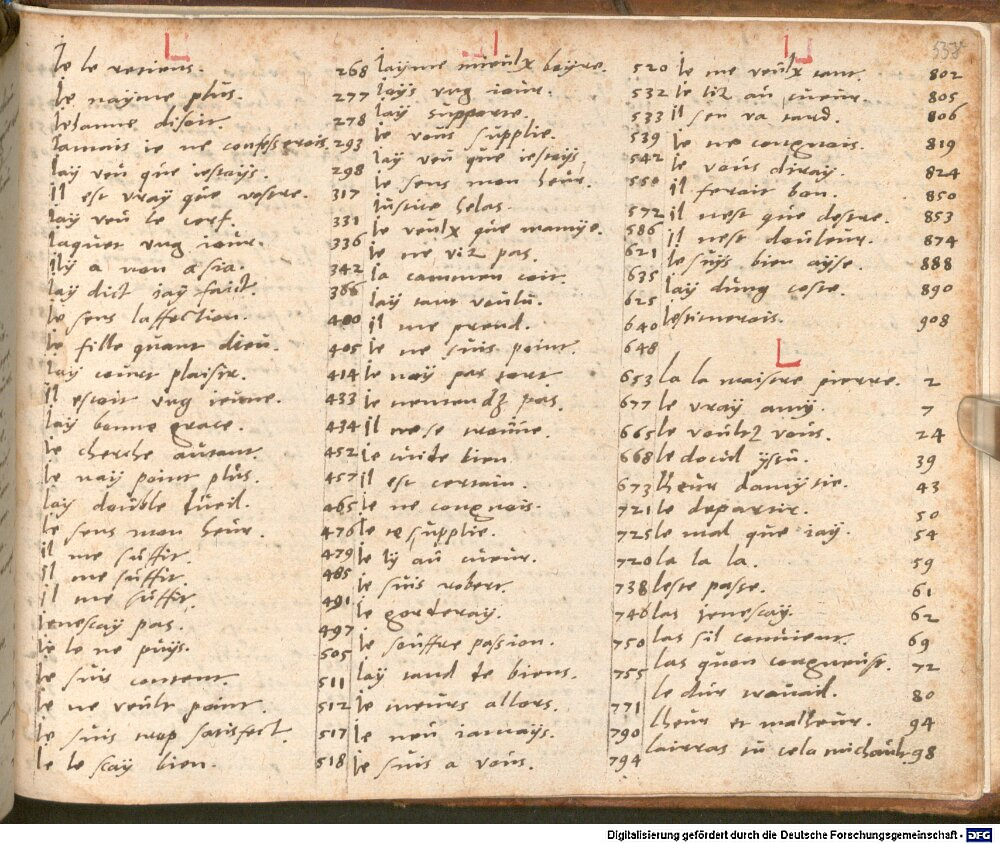 Je le retiens. 268
Je nayme plus. 277
Jehanne disoit. 278
Jamais ie ne confesserois. 293
Jay veu que iestoys. 298
Il est vray que vostre. 317
Jay veu le cerf. 331
Jaquet vng iour. 336
Il y a non 342
Jay dict iay faict. 386
Je sens laffection. 400
Je fille quant dieu. 405
Jay court plaisir. 414
Il estoit vng ieune. 433
Jay bonne grace. 434
Je cherche autant. 452
Je nay point plus. 457
Jay double lueil. 465
Je sens mon heur. 476
Il me suffit. 479
Il me suffit. 485
Il me suffit. 491
Jenescay pas. 497
Je le ne puys. 505
Je suis content 511
Je ne veult point. 512
Je suis trop satisfect. 517
Je le scay bien. 518
Jayme mieulx boyre. 520
Jays vng iour. 532
Jay supporte. 533
Je vous supplie. 539
Jay veu que iestoys 542
Je sens mon heur. 550
Justice helas. 572
Je veulx que mamye. 586
Je ne viz pas. 621
La commen 635
Jay tant voulu. 625
Il me prend. 640
Je ne suis point. 648
Je nay pas tort 653
Je nentendz pas. 677
Il ne se trouve. 665
Je cuide bien 668
Il est certain. 673
Je ne congnois. 721
Je te supplie. 725
Je ly au cueur. 720
Je suis robert. 738
Je gorderay. 746
Je souffre passion. 750
Jay tand de biens. 755
Je meurs allors. 771
Je neu iamays. 790
Je suis a vous. 794
L
Je me veulx tant. 802
Je liz au cueur 805
Il sen va tard. 806
Je ne congnois. 819
Je vous diray. 824
Il feroit bon. 850
Il nest que destre. 853
Il nest douleur. 874
Je suys bien ayse. 888
Jay dung coste. 890
Jestimerois. 908
L
La la maistre pierre. 2
Le vray amy. 7
Le voulez vous. 24
Le docul ystu. 39
Lheur damytie. 43
Le departir. 50
Le mal que iay. 54
La la la. 59
Leste passe. 61
Las jenescay. 62
Las sil convient. 69
Las quon congneust. 72
Le dur travail. 80
Lheur et malheur. 94
Lairras tu cela michault 98
Digitalisierung gefördert durch die Deutsche Forschungsgemeinschaft - DFG